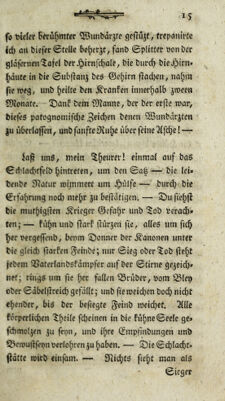 15
so vieler berühmter Wundärzte gestüzt, trepanirte
ich an dieser Stelle beherzt, fand Splitter von der
gläsernen Tafel der Hirnschale, die durch die Hirn-
häute in die Substanz des Gehirn stachen, nahm
sie weg, und heilte den Kranken innerhalb zween
Monate. — Dank dem Manne, der der erste war,
dieses patognomische Zeichen denen Wundärzten
zu überlassen, und sanfte Ruhe über seine Asche! —
Laßt uns, mein Theurer! einmal auf das
Schlachtfeld hintreten, um den Satz — die lei-
dende Natur wimmert um Hülfe — durch die
Erfahrung noch mehr zu bestätigen. — Du siehst
die muthigsten Krieger Gefahr und Tod verach-
ten; — kühn und stark stürzen sie, alles um sich
her vergessend, beym Donner der Kanonen unter
die gleich starken Feinde; nur Sieg oder Tod steht
jedem Vaterlandskämpfer auf der Stirne gezeich-
net; rings um sie her fallen Brüder, vom Bley
oder Säbelstreich gefällt; und sie weichen doch nicht
ehender, bis der besiegte Feind weichet. Alle
körperlichen Theile scheinen in die kühne Seele ge-
schmolzen zu seyn, und ihre Empfindungen und
Bewegungen verlohren zu haben. — Die Schlacht-
stätte wird einsam. — Nichts sieht man als
Sieger